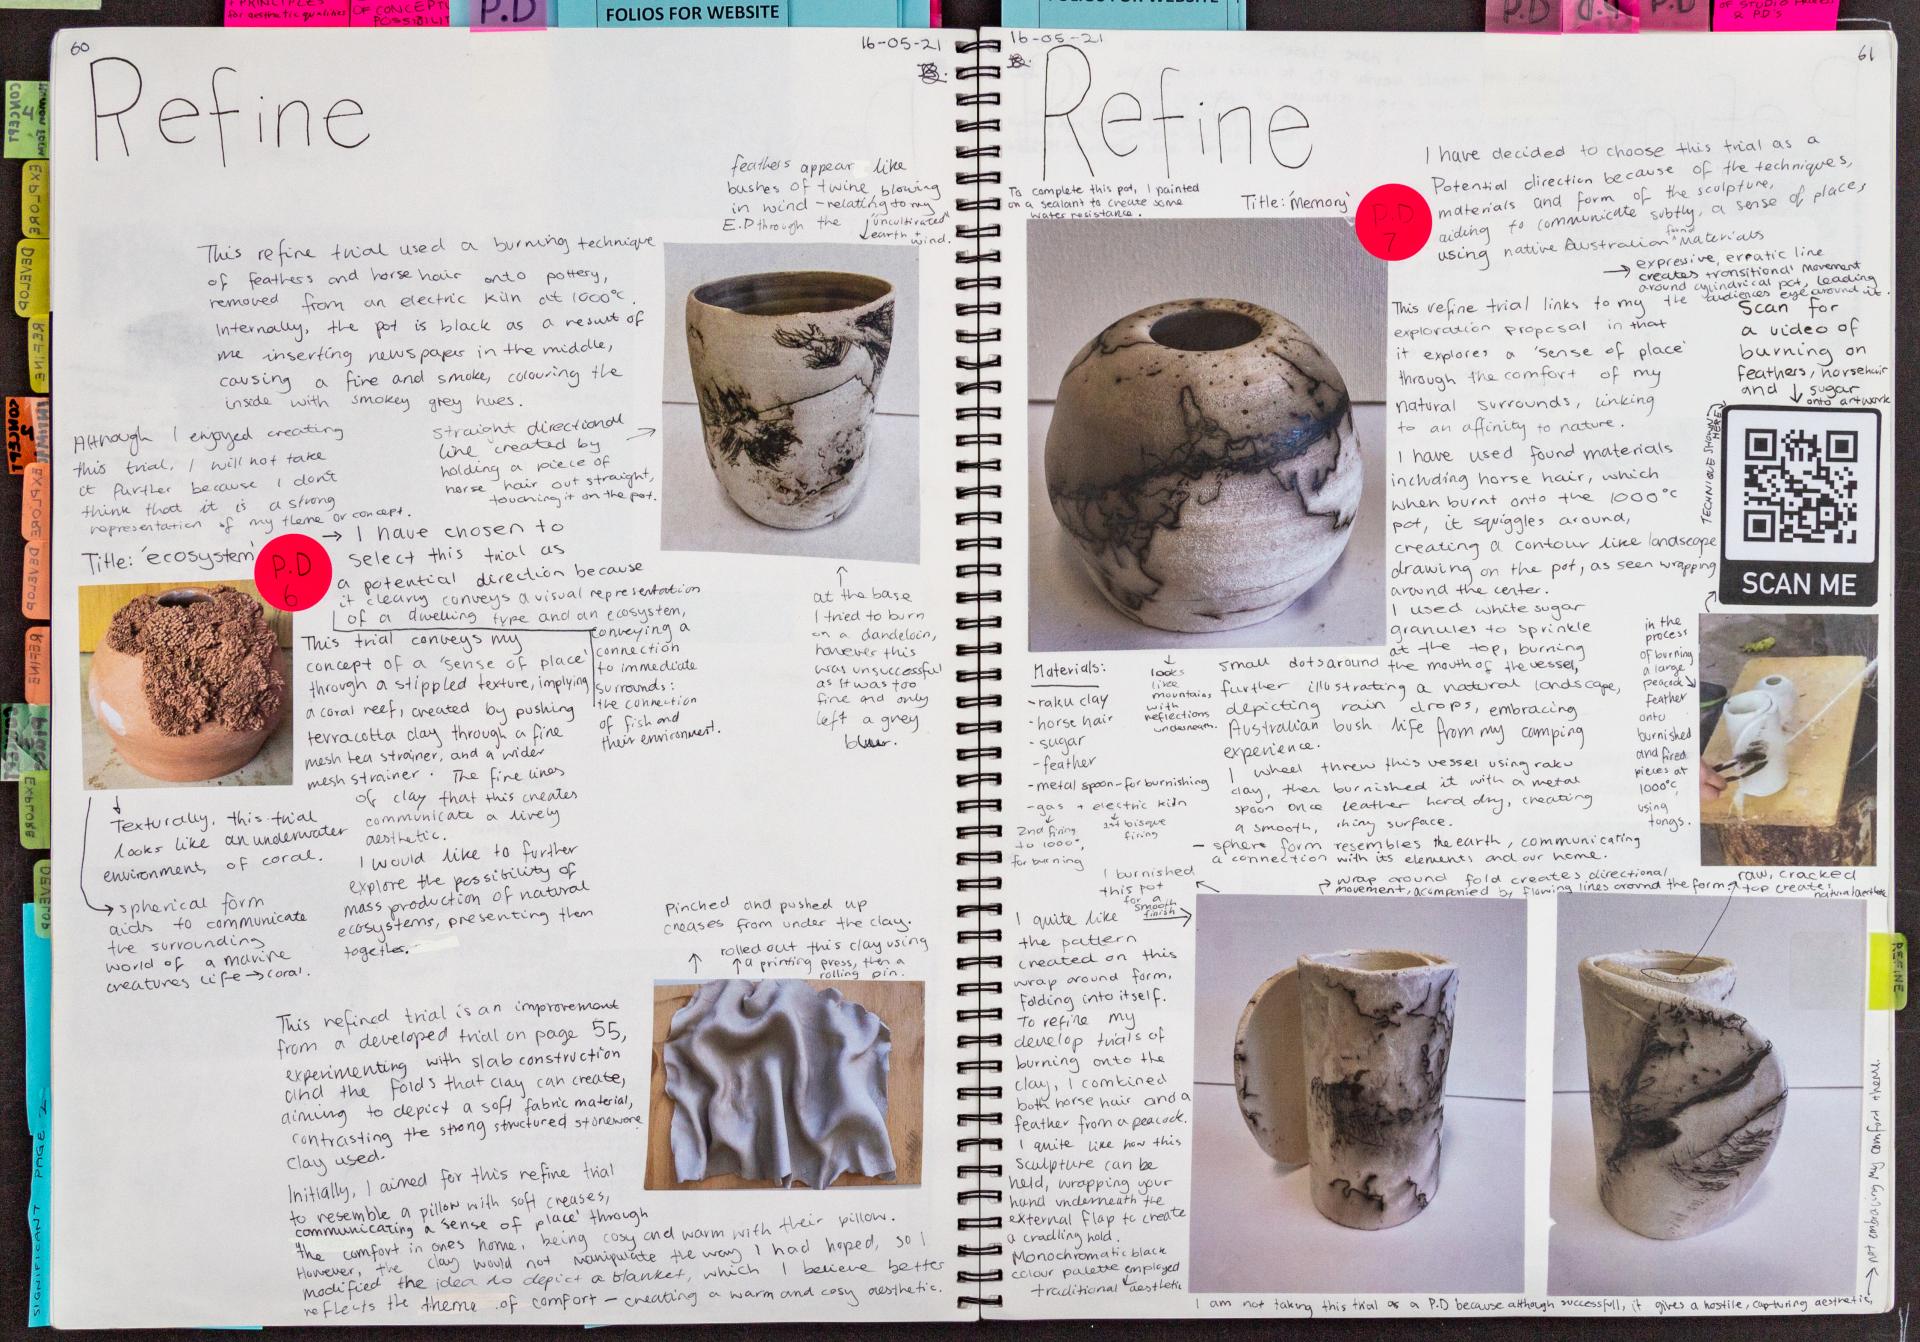 PRINCIPLES
for aesthetic qualities
OF CONCEPT
POSSIBILIT
P.D
FOLIOS FOR WEBSITE
FOLIOS FOR WEBSITE
P.D
P.D
P.D
OF STUDIO PROCESS
& P.D'S
CONCEPT
4
EXPLORE
DEVELOP
REFINE
CONCEPT
EXPLORE
DEVELOP
REFINE
EXPLORE
DEVELOP
SIGNIFICANT PAGE 2
60
16-05-21
Refine
feathers appear like
bushes of twine blowing
in wind - relating to my
E.D through the "uncultivated"
earth + wind.
This refine trial used a burning technique
of feathers and horse hair onto pottery,
removed from an electric kiln at 1000°c.
Internally, the pot is black as a result of
me inserting newspaper in the middle,
causing a fire and smoke, colouring the
inside with smokey grey hues.
Although I enjoyed creating
this trial, I will not take
it further because I don't
think that it is a strong
representation of my theme or concept.
straight directional
line created by
holding a piece of
horse hair out straight,
touching it on the pot.
Title: 'ecosystem'
P.D
6
→ I have chosen to
select this trial as
a potential direction because
it clearly conveys a visual representation
of a dwelling type and an ecosystem,
conveying a
connection
to immediate
surrounds:
the connection
of fish and
their environment.
This trial conveys my
concept of a 'sense of place'
through a stippled texture, implying
a coral reef, created by pushing
terracotta clay through a fine
mesh tea strainer, and a wider
mesh strainer. The fine lines
of clay that this creates
communicate a lively
aesthetic.
I would like to further
explore the possibility of
mass production of natural
ecosystems, presenting them
together.
at the base
I tried to burn
on a dandeloin,
however this
was unsuccessful
as it was too
fine and only
left a grey
blur.
Texturally, this trial
looks like an underwater
environment, of coral.
spherical form
aids to communicate
the surrounding
world of a marine
creatures life → coral.
Pinched and pushed up
creases from under the clay.
rolled out this clay using
a printing press, then a
rolling pin.
This refined trial is an improvement
from a developed trial on page 55,
experimenting with slab construction
and the folds that clay can create,
aiming to depict a soft fabric material,
contrasting the strong structured stoneware
clay used.
Initially, I aimed for this refine trial
to resemble a pillow with soft creases,
communicating a 'sense of place' through
the comfort in ones home, being cosy and warm with their pillow.
However, the clay would not manipulate the way I had hoped, so I
modified the idea to depict a blanket, which I believe better
reflects the theme of comfort - creating a warm and cosy aesthetic.
16-05-21
61
Refine
To complete this pot, I painted
on a sealant to create some
water resistance.
Title: 'Memory'
P.D
7
I have decided to choose this trial as a
Potential direction because of the techniques,
materials and form of the sculpture,
aiding to communicate subtly, a sense of place,
using native Australian found materials
→ expressive, erratic line
creates transitional movement
around cylindrical pot, leading
the audiences eye around it.
This refine trial links to my
exploration proposal in that
it explores a 'sense of place'
through the comfort of my
natural surrounds, linking
to an affinity to nature.
I have used found materials
including horse hair, which
when burnt onto the 1000°c
pot, it squiggles around,
creating a contour like landscape
drawing on the pot, as seen wrapping
around the center.
I used white sugar
granules to sprinkle
at the top, burning
small dots around the mouth of the vessel,
further illustrating a natural landscape,
depicting rain drops, embracing
Australian bush life from my camping
experience.
I wheel threw this vessel using raku
clay, then burnished it with a metal
spoon once leather hard dry, creating
a smooth, shiny surface.
- sphere form resembles the earth, communicating
a connection with its elements and our home.
Scan for
a video of
burning on
feathers, horsehair
and sugar
onto artwork
TECHNIQUE SHOWN HERE
SCAN ME
in the
process
of burning
a large
peacock
feather
onto
burnished
and fired
pieces at
1000°c,
using
tongs.
Materials:
- raku clay
- horse hair
- sugar
- feather
- metal spoon - for burnishing
- gas + electric kiln
2nd firing
to 1000°,
for burning
1st bisque
firing
looks
like
mountains,
with
reflections
underneath.
I burnished
this pot
for a
smooth
finish
wrap around fold creates directional
movement, acompanied by flowing lines around the form
raw, cracked
top creates
natural aesthetic
I quite like
the pattern
created on this
wrap around form,
folding into itself.
To refine my
develop trials of
burning onto the
clay, I combined
both horse hair and a
feather from a peacock.
I quite like how this
sculpture can be
held, wrapping your
hand underneath the
external flap to create
a cradling hold.
Monochromatic black
colour palette employed
traditional aesthetic
I am not taking this trial as a P.D because although successfull, it gives a hostile, capturing aesthetic,
→ not embracing my comfort theme.
REFINE